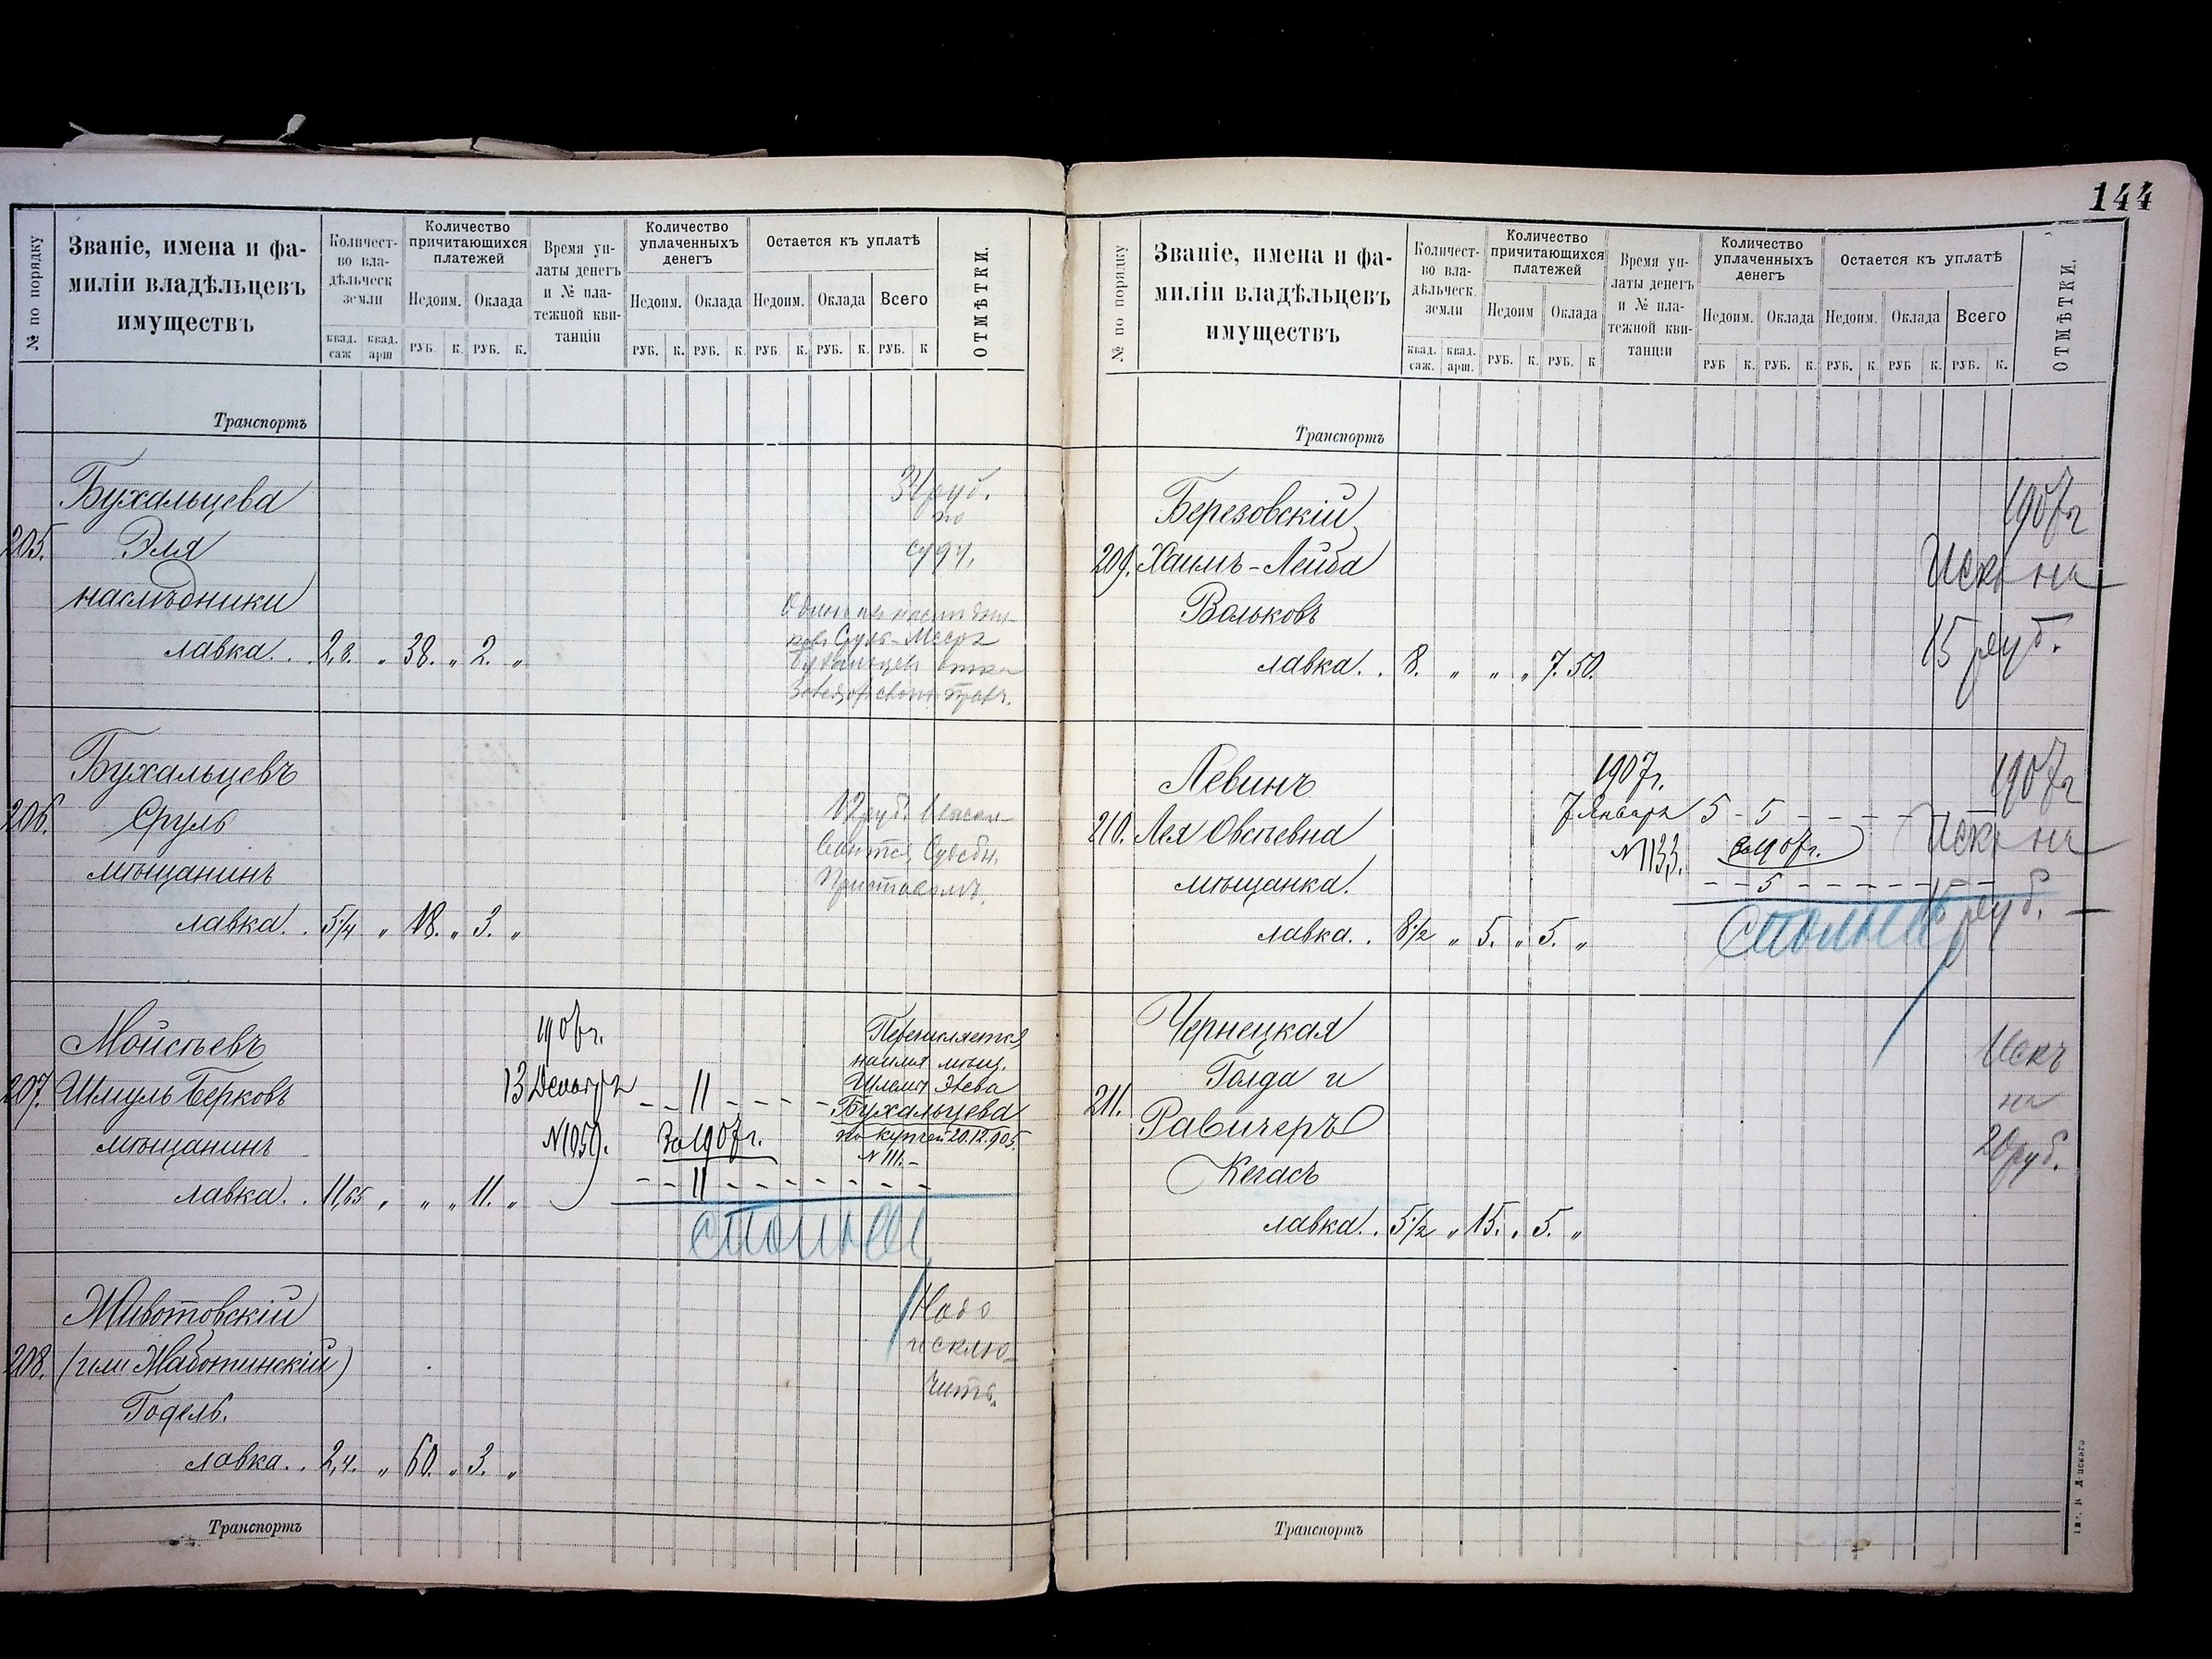 144
№ по порядку
Званіе, имена и фа-
миліи владѣльцевъ
имуществъ
Количест-
во вла-
дѣльческ
земли
квад. саж квад. арш
Количество
причитающихся
платежей
Недоим. Оклада
РУБ. К. РУБ. К.
Время уп-
латы денегъ
и № пла-
тежной кви-
танціи
Количество
уплаченныхъ
денегъ
Недоим. Оклада
РУБ. К. РУБ. К.
Остается къ уплатѣ
Недоим. Оклада Всего
РУБ. К. РУБ. К. РУБ. К
ОТМѢТКИ.
Транспортъ
Бухальцева
205. Эля
наслѣдники
лавка. . . 2,8. „ 38. „ 2. „
руб.
по
суду.
206. Бухальцевъ
Сруль
мѣщанинъ
лавка. . 5¼ „ 18. „ 3. „
Судебн.
Приставомъ.
Мойсѣевъ
207. Шмуль Берковъ
мѣщанинъ
лавка. . 11,65 „ „ „ 11. „
1906г.
13 Декабря
№1059.
11
За 1907г.
11
Перечисляется
на имя мѣщ.
Бухальцева
по купчей 20.12.905.
№ 111.-
Животовскій
208. (или Жаботинскій)
Годель.
лавка. . 2,4. „ 60. „ 3. „
Надо
исклю-
чить.
Транспортъ
№ по порядку
Званіе, имена и фа-
миліи владѣльцевъ
имуществъ
Количест-
во вла-
дѣльческ.
земли
квад. саж. квад. арш.
Количество
причитающихся
платежей
Недоим Оклада
РУБ. К. РУБ. К
Время уп-
латы денегъ
и № пла-
тежной кви-
танціи
Количество
уплаченныхъ
денегъ
Недоим. Оклада
РУБ К. РУБ. К.
Остается къ уплатѣ
Недоим. Оклада Всего
РУБ. К. РУБ К. РУБ. К.
ОТМѢТКИ.
Транспортъ
Березовскій
209. Хаимъ-Лейба
Вольковъ
лавка. . 8. „ „ „ 7. 50.
1907г
Искъ на
15 руб.
Левинъ
210. Лея Овсѣевна
мѣщанка.
лавка. . 8½ „ 5. „ 5. „
1907г.
7 Января 5 - 5
№1133.
За 1907г.
5
1907г
Искъ на
15 руб.
Чернецкая
Голда и
211. Равичеръ
Кегась
лавка. . 5½ „ 15. „ 5. „
Искъ
на
20 руб.
Транспортъ